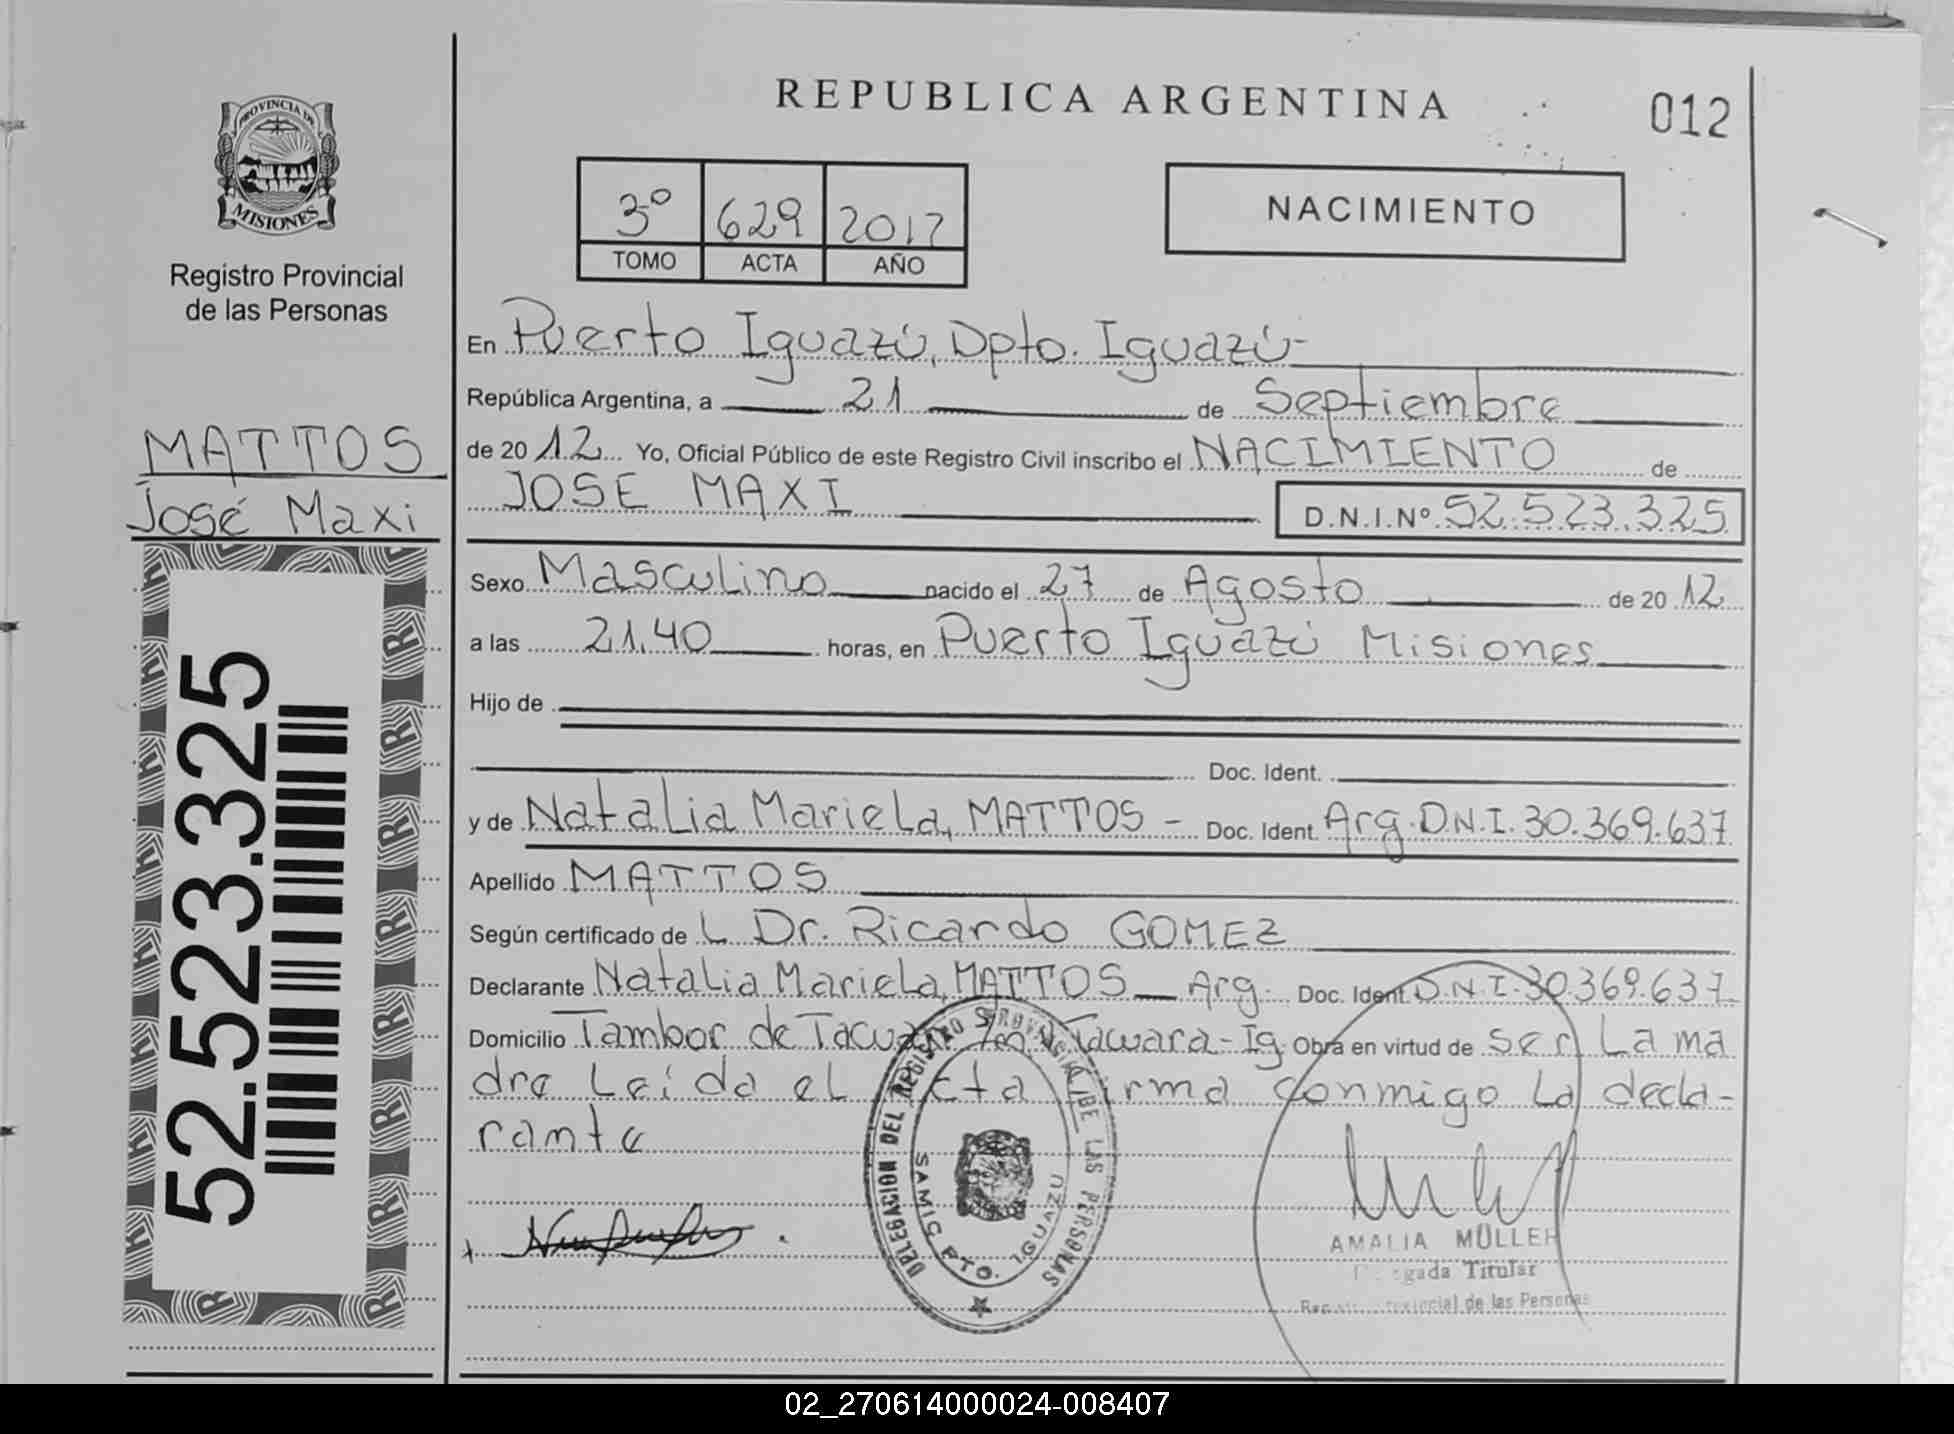 REPUBLICA ARGENTINA
012
PROVINCIA DE
MISIONES
Registro Provincial
de las Personas
3º 629 2012
TOMO ACTA AÑO
NACIMIENTO
MATTOS
José Maxi
52.523.325
En Puerto Iguazú, Dpto. Iguazú-
República Argentina, a 21 de Septiembre
de 2012 Yo, Oficial Público de este Registro Civil inscribo el NACIMIENTO de
JOSE MAXI D.N.I.Nº 52.523.325
Sexo Masculino nacido el 27 de Agosto de 2012
a las 21.40 horas, en Puerto Iguazú Misiones
Hijo de
Doc. Ident.
y de Natalia Mariela, MATTOS - Doc. Ident. Arg. D.N.I. 30.369.637
Apellido MATTOS
Según certificado de L Dr. Ricardo GOMEZ
Declarante Natalia Mariela, MATTOS Arg. Doc. Ident. D.N.I. 30.369.637
Domicilio Tambor de Tacuara - Ig. Obra en virtud de ser La ma
dre Leída el acta firma conmigo La decla-
rante
DELEGACION DEL REGISTRO PROVINCIAL DE LAS PERSONAS
SAMIC PTO. IGUAZU
AMALIA MÜLLER
Delegada Titular
Registro Provincial de las Personas
02_270614000024-008407